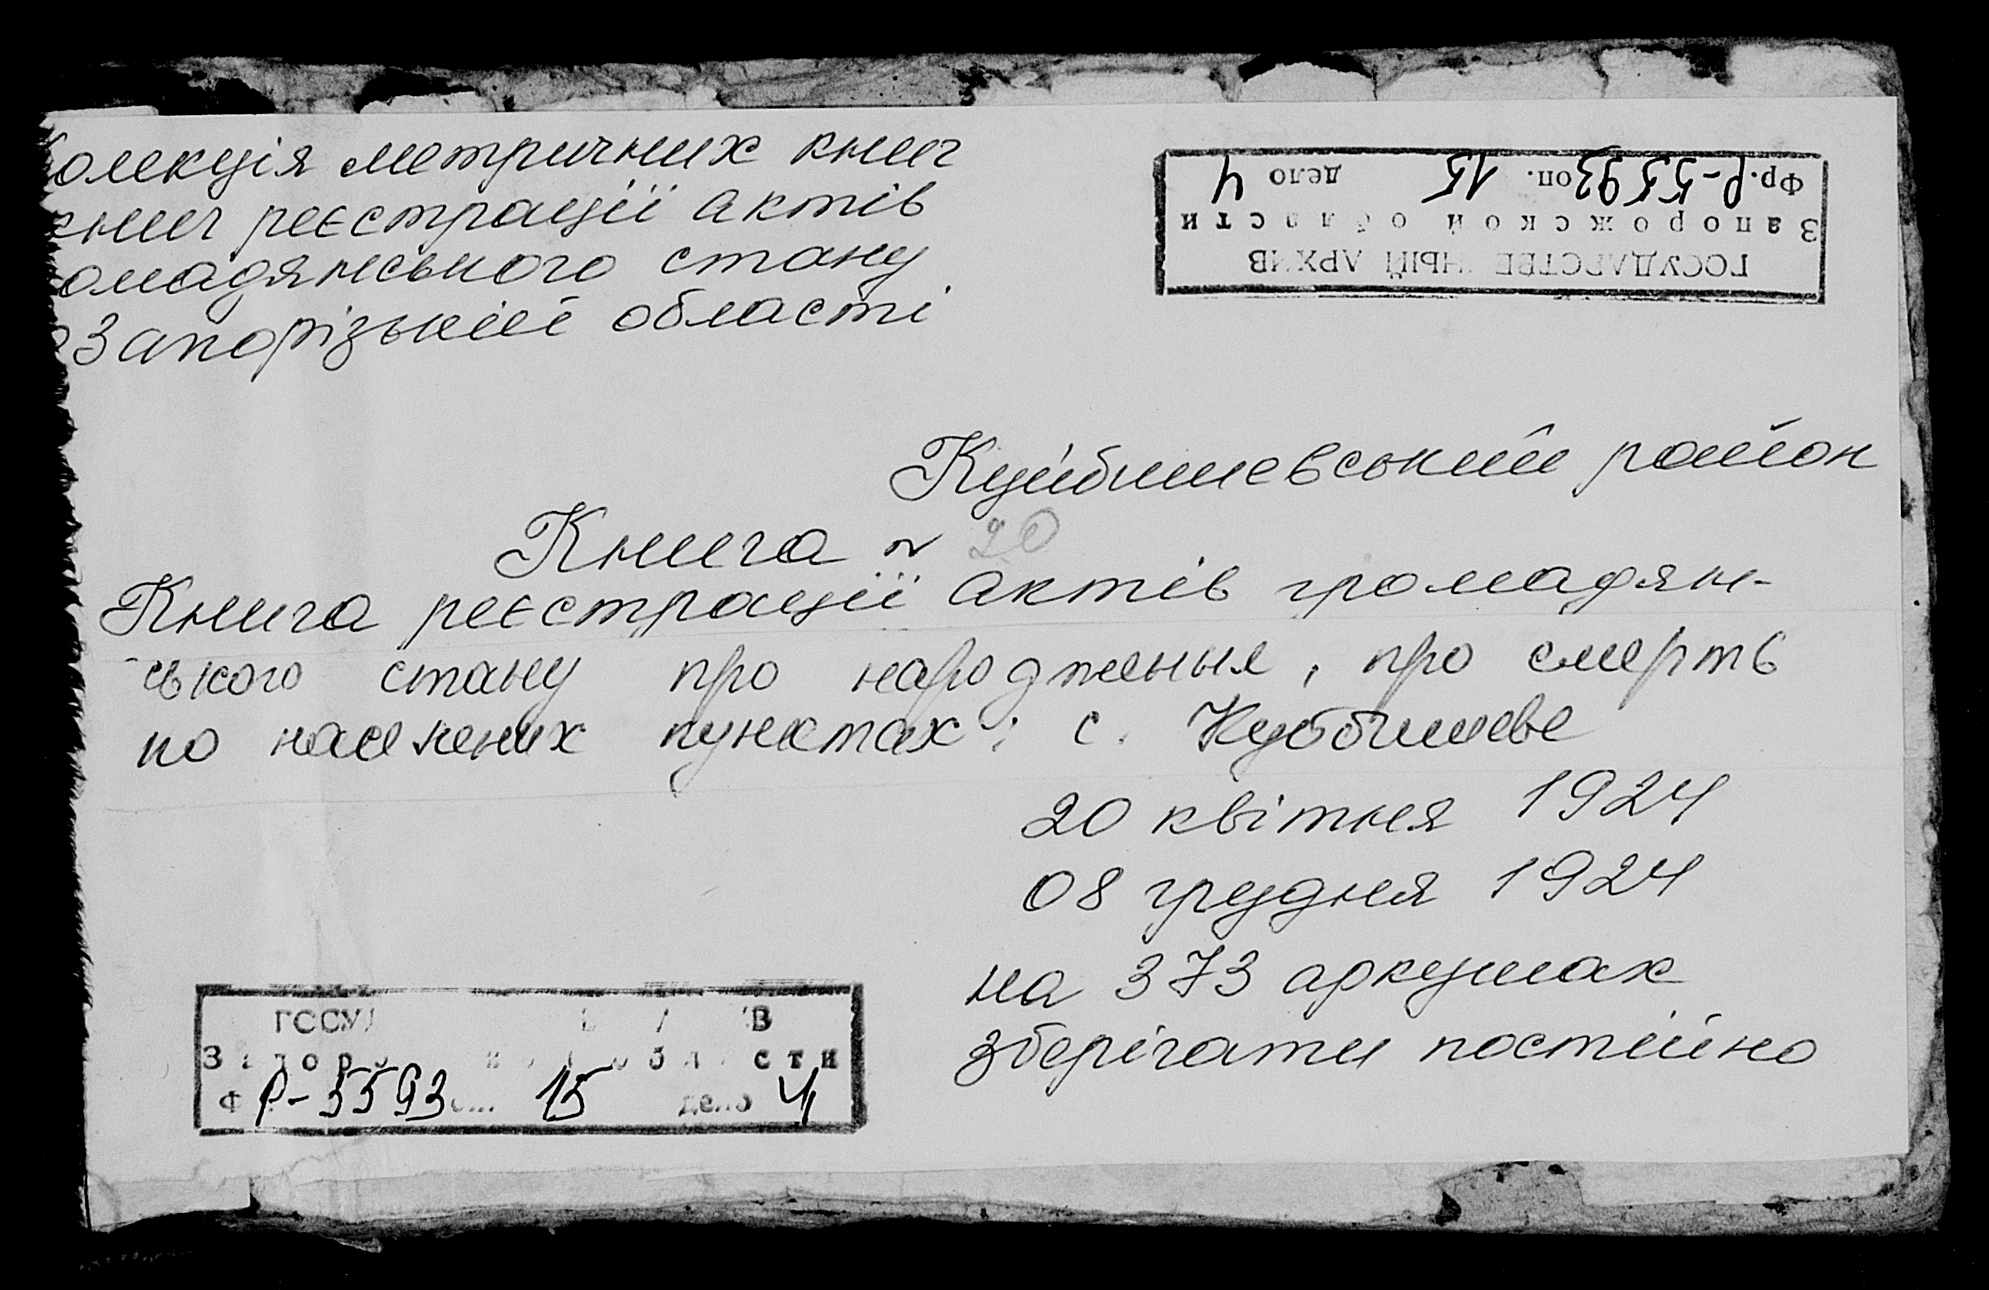 олекція метричних книг
книг реєстрації актів
омадянського стану
Запорізькій області
Фр. Р-5593 оп. 15 дело 4
Запорожской области
ГОСУДАРСТВЕННЫЙ АРХИВ
Куйбишевський район
Книга № 20
Книга реєстрації актів громадян-
ського стану про народження, про смерть
по населених пунктах: с. Куйбишеве
20 квітня 1924
08 грудня 1924
на 373 аркушах
зберігати постійно
Ф Р-5593 15 дело 4